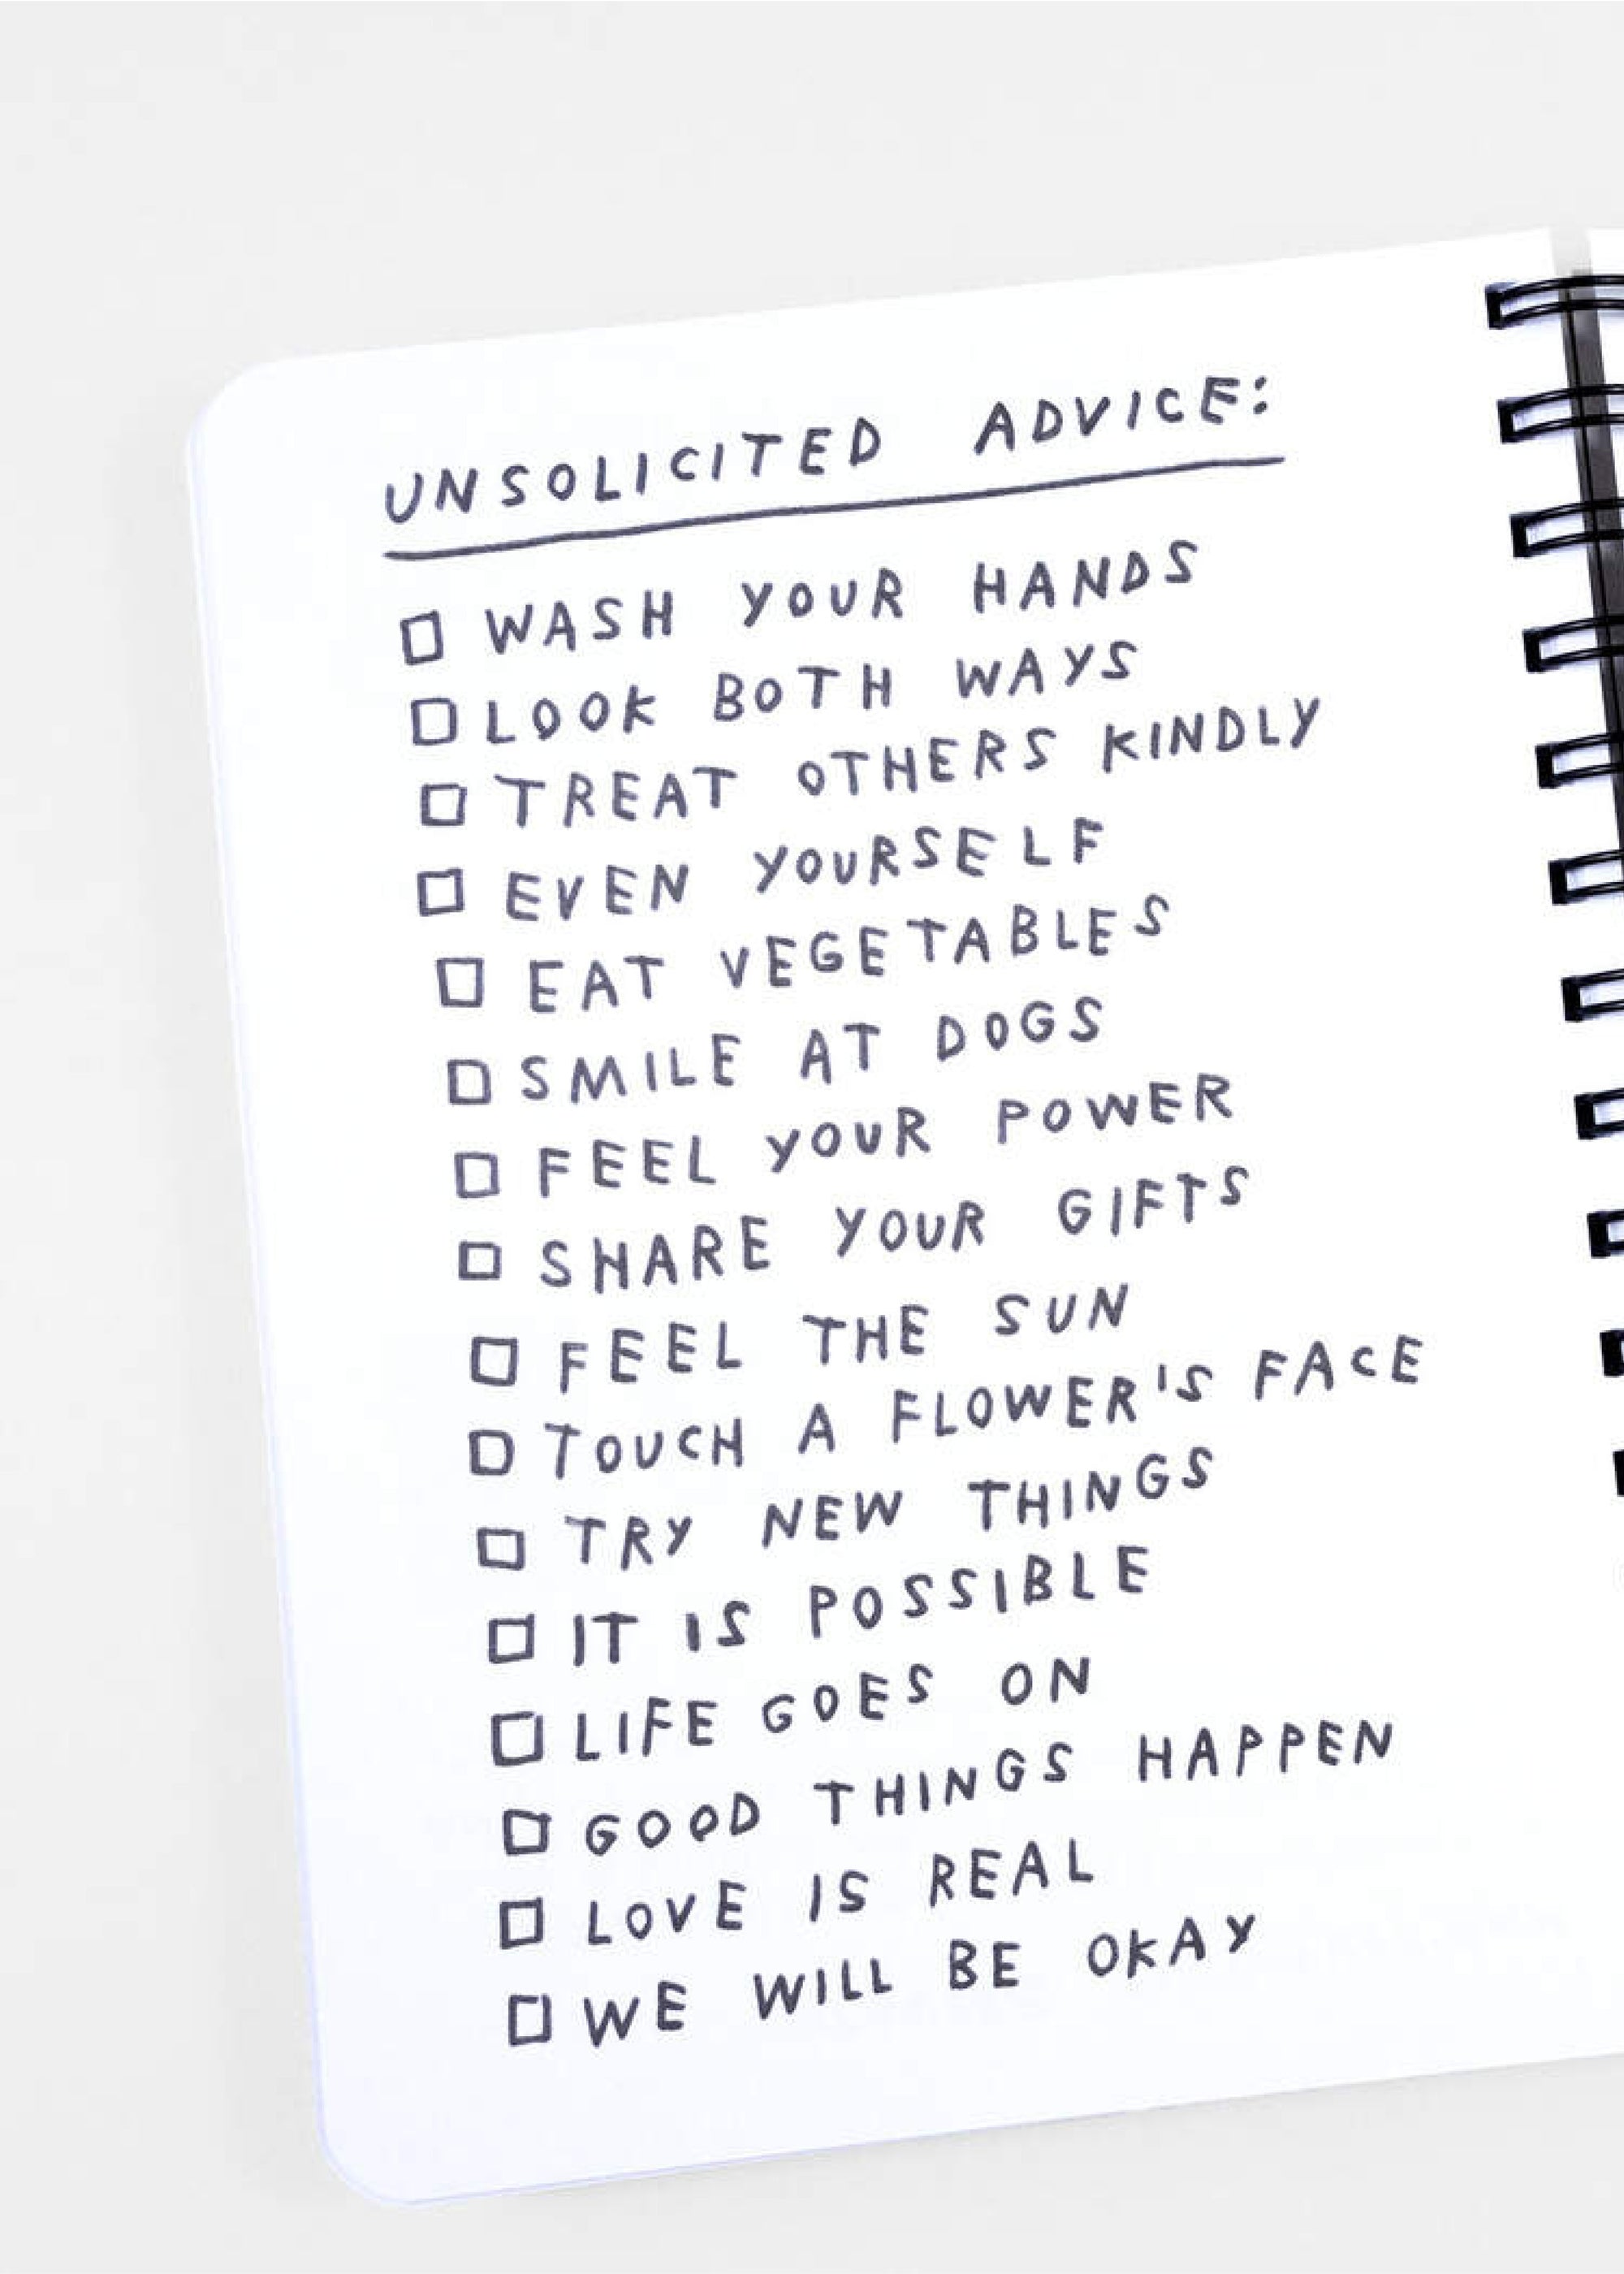 UNSOLICITED ADVICE:
WASH YOUR HANDS
LOOK BOTH WAYS
TREAT OTHERS KINDLY
EVEN YOURSELF
EAT VEGETABLES
SMILE AT DOGS
FEEL YOUR POWER
SHARE YOUR GIFTS
FEEL THE SUN
TOUCH A FLOWER'S FACE
TRY NEW THINGS
IT IS POSSIBLE
LIFE GOES ON
GOOD THINGS HAPPEN
LOVE IS REAL
WE WILL BE OKAY